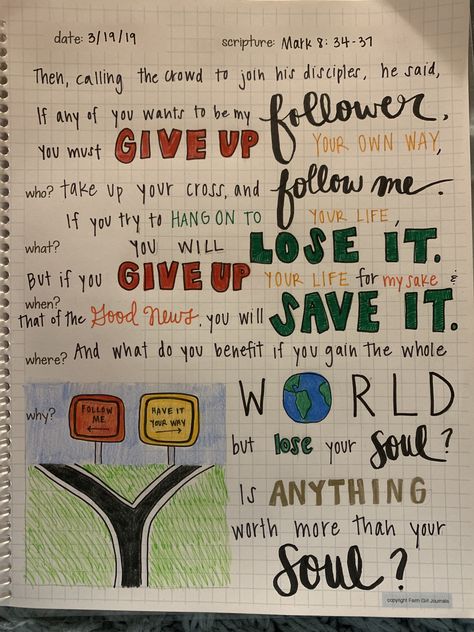 date: 3/19/19 scripture: Mark 8: 34-37
Then, calling the crowd to join his disciples, he said,
If any of you wants to be my follower,
You must GIVE UP YOUR OWN WAY,
who? take up your cross, and follow me.
If you try to HANG ON TO YOUR LIFE,
what? YOU WILL LOSE IT.
But if you GIVE UP YOUR LIFE for my sake &
when?
that of the Good News, you will SAVE IT.
where? And what do you benefit if you gain the whole
WORLD
why?
FOLLOW
ME
HAVE IT
YOUR WAY
but lose your soul?
Is ANYTHING
worth more than your
soul?
copyright Farm Girl Journals